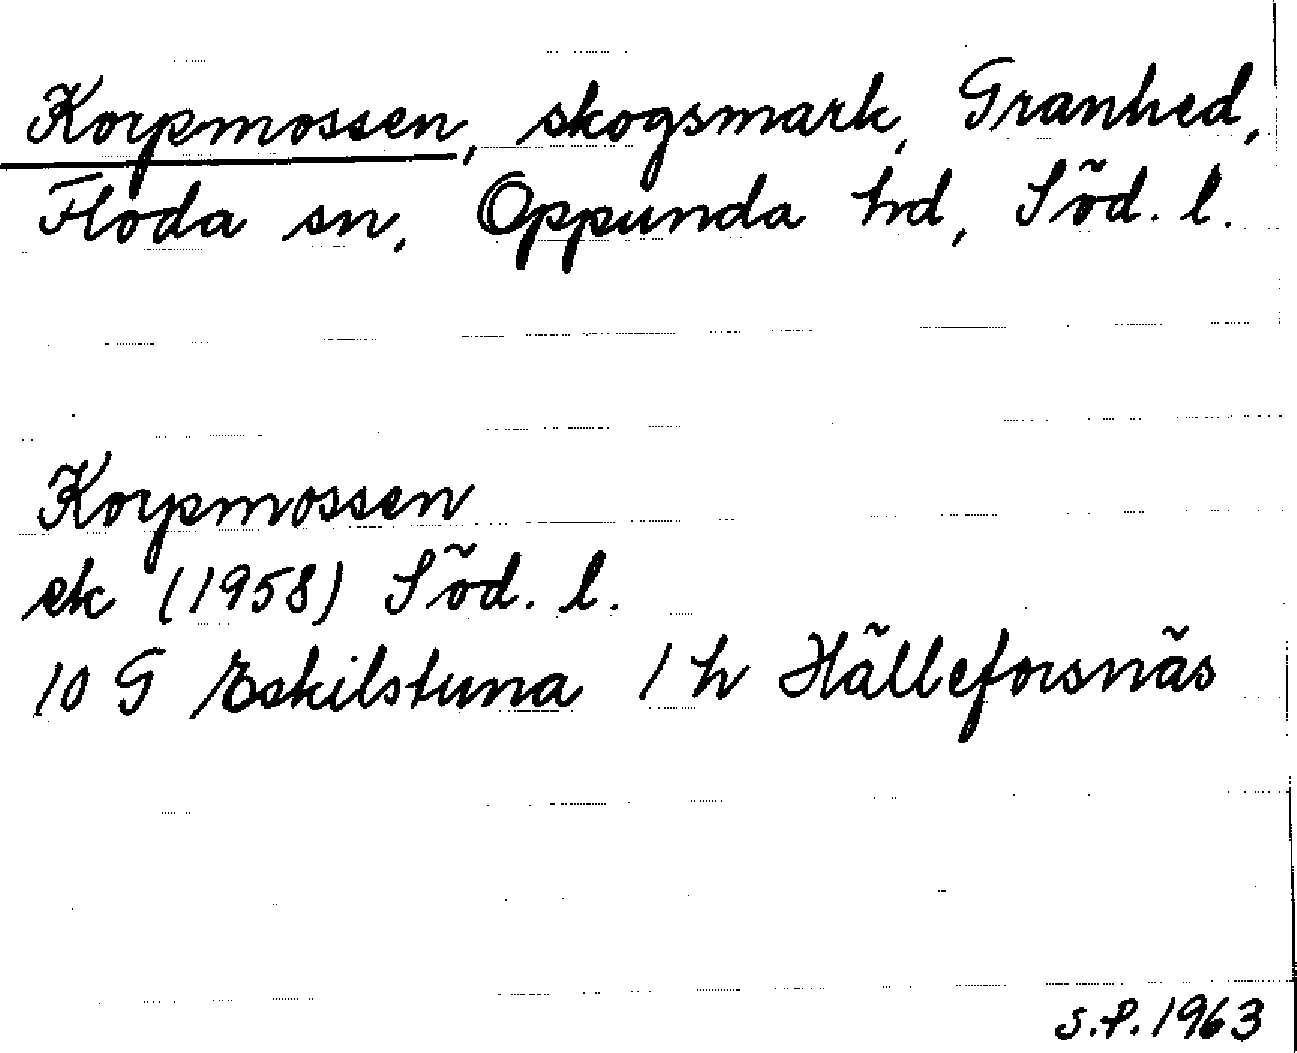 Korpmossen, skogsmark, Granhed,
Floda sn, Oppunda hd, Söd. l.
Korpmossen
ek (1958) Söd. l.
10 G Eskilstuna 1 h Hälleforsnäs
S.P. 1963